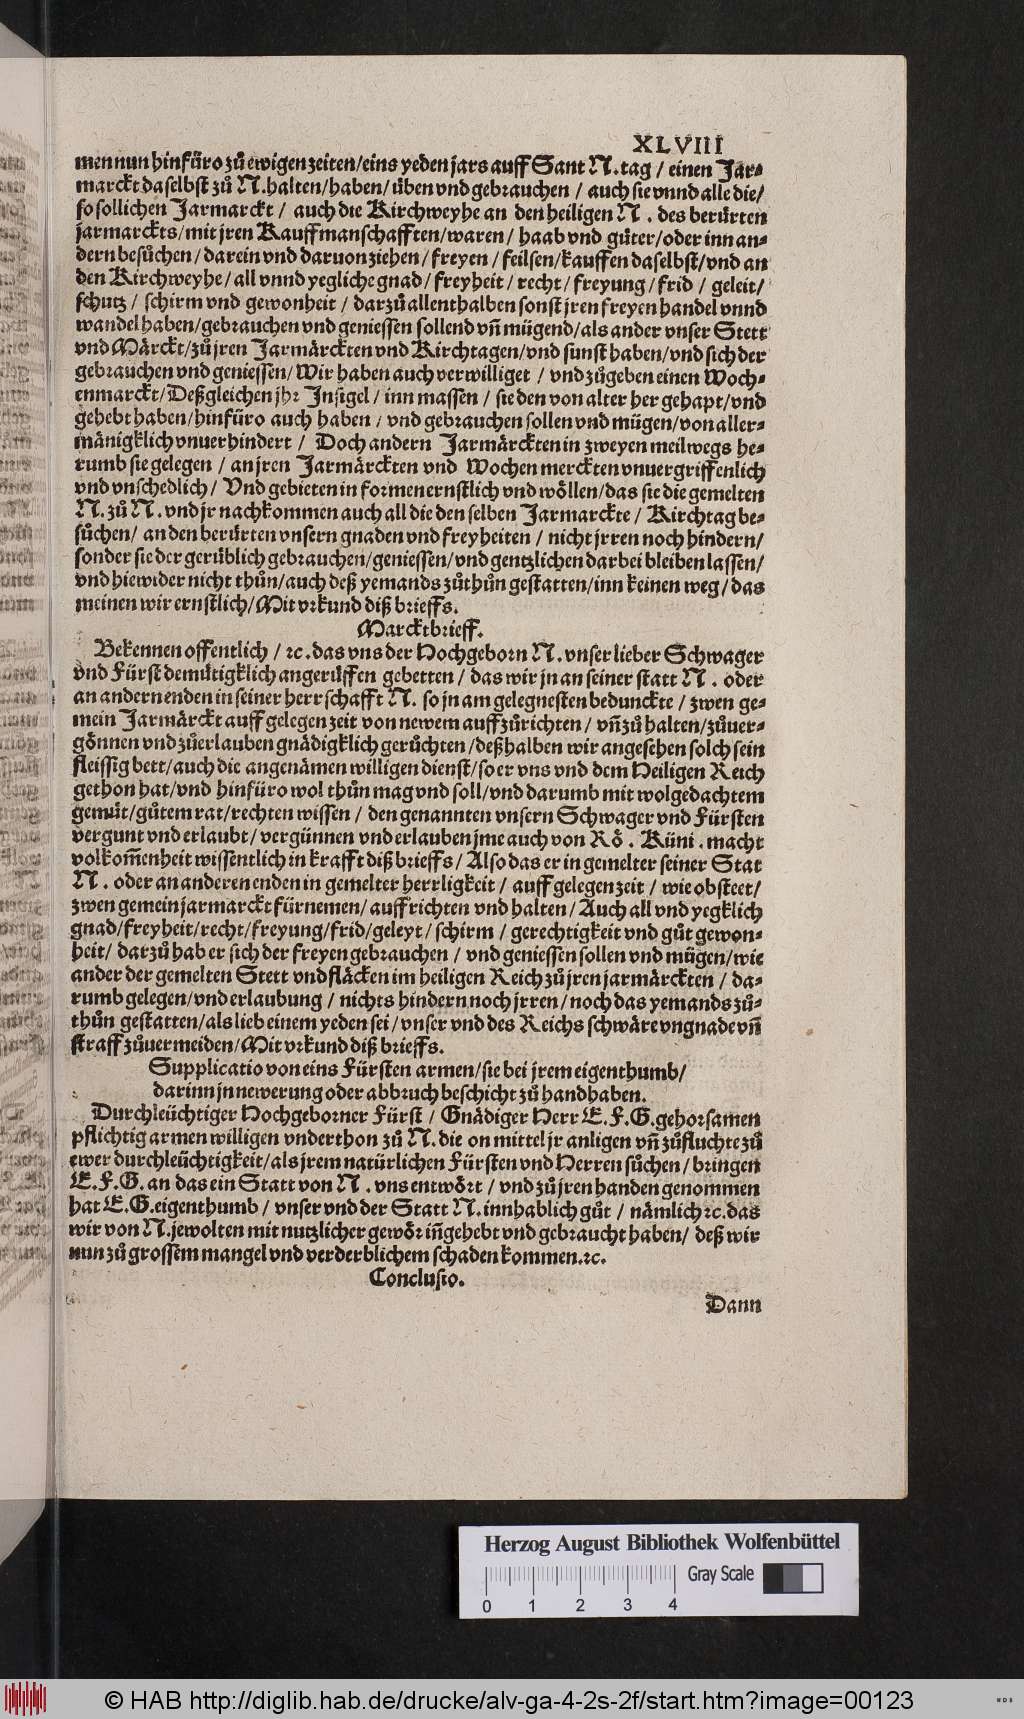 XLVIII
men nun hinfüro zů ewigen zeiten/eins yeden jars auff Sant N. tag / einen Jar⸗
marckt daselbst zů N. halten/haben/ üben vnd gebrauchen / auch sie vnnd alle die/
so sollichen Jarmarckt / auch die Kirchweyhe an den heiligen N. des berürten
jarmarckts/mit jren Kauffmanschafften/waren/ haab vnd güter/oder inn an⸗
dern besůchen/darein vnd daruon ziehen/freyen/feilsen/kauffen daselbst/vnd an
den Kirchweyhe/all vnnd yegliche gnad/freyheit/recht/freyung/frid/ geleit/
schutz/ schirm vnd gewonheit/ darzů allenthalben sonst jren freyen handel vnnd
wandel haben/gebrauchen vnd geniessen sollend vñ mügend/als ander vnser Stett
vnd Märckt/zů jren Jarmärckten vnd Kirchtagen/vnd sunst haben/vnd sich der
gebrauchen vnd geniessen/Wir haben auch verwilliget / vnd zůgeben einen Woch⸗
enmarckt/Deßgleichen jhr Insigel/inn massen/ sie den von alter her gehapt/vnd
gehebt haben/hinfüro auch haben / vnd gebrauchen sollen vnd mügen/von aller⸗
mänigklich vnuerhindert / Doch andern Jarmärckten in zweyen meilwegs he⸗
rumb sie gelegen / an jren Jarmärckten vnd Wochen merckten vnuergriffenlich
vnd vnschedlich/ Vnd gebieten in formen ernstlich vnd wöllen/das sie die gemelten
N. zů N. vnd jr nachkommen auch all die den selben Jarmarckte/ Kirchtag be⸗
sůchen/ an den berürten vnsern gnaden vnd freyheiten / nicht jrren noch hindern/
sonder sie der gerüblich gebrauchen/geniessen/vnd gentzlichen darbei bleiben lassen/
vnd hiewider nicht thůn/auch deß yemands zůthůn gestatten/inn keinen weg/das
meinen wir ernstlich/Mit vrkund diß brieffs.
Marcktbrieff.
Bekennen offentlich / ꝛc. das vns der Hochgeborn N. vnser lieber Schwager
vnd Fürst demütigklich angerüffen gebetten / das wir jn an seiner statt N. oder
an andern enden in seiner herrschafft N. so jn am gelegnesten beduncke / zwen ge⸗
mein Jarmärckt auff gelegen zeit von newem auffzůrichten/ vñ zů halten/zůuer⸗
gönnen vnd zůerlauben gnädigklich gerůchten/deßhalben wir angesehen solch sein
fleissig bett/auch die angenämen willigen dienst/so er vns vnd dem Heiligen Reich
gethon hat/vnd hinfüro wol thůn mag vnd soll/vnd darumb mit wolgedachtem
gemüt/gůtem rat/rechten wissen / den genannten vnsern Schwager vnd Fürsten
vergunt vnd erlaubt/ vergünnen vnd erlauben jme auch von Rö. Küni. macht
volkom̃enheit wissentlich in krafft diß brieffs/ Also das er in gemelter seiner Stat
N. oder an anderen enden in gemelter herrligkeit / auff gelegen zeit / wie obsteet/
zwen gemein jarmarckt fürnemen/ auffrichten vnd halten/ Auch all vnd yegklich
gnad/freyheit/recht/freyung/frid/geleyt/ schirm / gerechtigkeit vnd gůt gewon⸗
heit/ darzů hab er sich der freyen gebrauchen / vnd geniessen sollen vnd mügen/wie
ander der gemelten Stett vnd fläcken im heiligen Reich zů jren jarmärckten / da⸗
rumb gelegen/vnd erlaubung / nichts hindern noch jrren/noch das yemands zů⸗
thůn gestatten/als lieb einem yeden sei/vnser vnd des Reichs schwäre vngnade vñ
straff zůuermeiden/Mit vrkund diß brieffs.
Supplicatio von eins Fürsten armen/sie bei jrem eigenthumb/
darinn jn newerung oder abbruch beschicht zů handhaben.
Durchleüchtiger Hochgeborner Fürst / Gnädiger Herr E. F. G. gehorsamen
pflichtig armen willigen vnderthon zů N. die on mittel jr anligen vñ zůfluchte zů
ewer durchleüchtigkeit/als jrem natürlichen Fürsten vnd Herren sůchen/ bringen
E. F. G. an das ein Statt von N. vns entwört / vnd zů jren handen genommen
hat E. G. eigenthumb/ vnser vnd der Statt N. innhablich gůt / nämlich ꝛc. das
wir von N. jewolten mit nutzlicher gewör iñgehebt vnd gebraucht haben/ deß wir
nun zů grossem mangel vnd verderblichem schaden kommen. ꝛc.
Conclusio.
Dann
Herzog August Bibliothek Wolfenbüttel
Gray Scale
0 1 2 3 4
© HAB http://diglib.hab.de/drucke/alv-ga-4-2s-2f/start.htm?image=00123